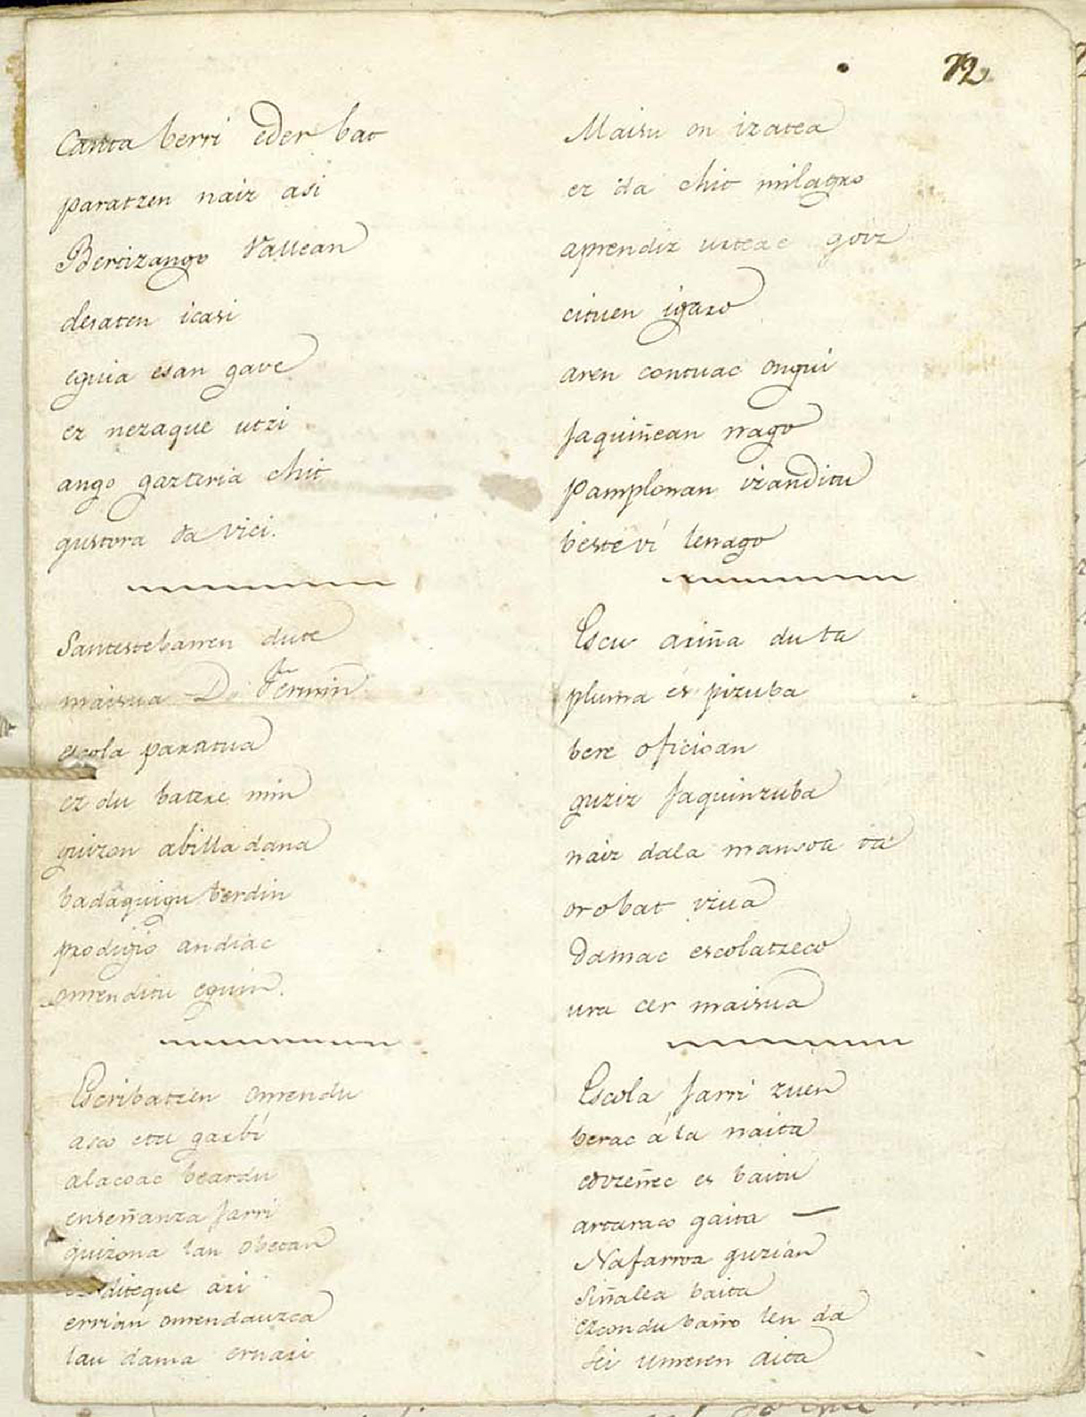 72
Canta berri eder bat
paratzen naiz asi
Bertizango Vallean
desaten icasi
eguia esan gave
ez nezaque utzi
ango gazteria chit
gustora da vici.
Santestebanen dute
maisua Dn Fermin
escola paratua
ez du batere min
guizon abilla dana
badaquigu berdin
prodigio andiac
omenditu eguin.
Escribatzen omendu
aso eta garbi
alacoac beardu
enseñanza jarri
guizona lan obetan
diteque ari
errian omendauzca
lau dama ernari
Maisu on izatea
ez da chit milagro
aprendiz urteac goiz
cituen igaro
aren contuac ongui
jaquiñean nago
Pamplonan izanditu
beste vi lenago
Escu ariña du ta
pluma es pizuba
bere oficioan
guziz jaquinzuba
naiz dala mansoa ta
orobat viua
Damac escolatzeco
ura cer maisua
Escola jarri zuen
berac ala naita
coozeñec es baitu
artaraco gaita
Nafarroa guzian
Siñalea baita
ezcondu baño len da
Sei umeren aita